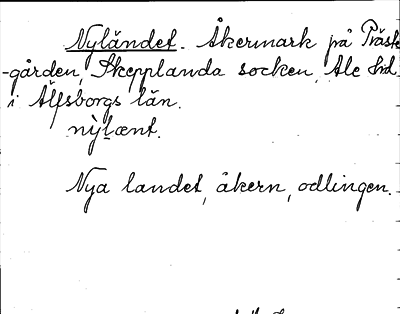 Nyländet. Åkermark på Präst
-gården, Skepplanda socken, Ale hd
i Älfsborgs län.
nỳlænt.
Nya landet, åkern, odlingen.